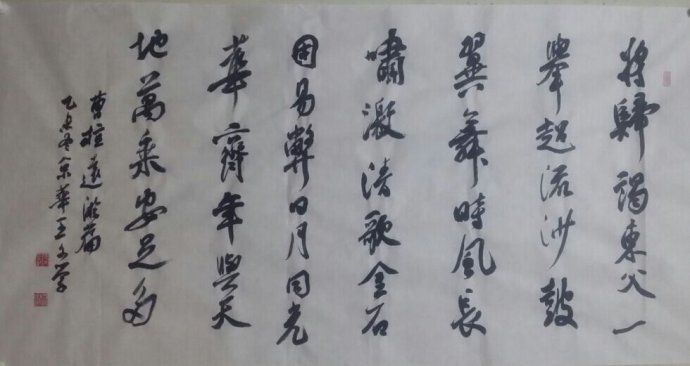 将歸謁東父一
舉超流沙鼓
翼舞時風長
嘯激清歌金石
固易弊日月同光
華齊年與天
地萬乘安足多
曹植遠遊篇
乙未冬京華王文学